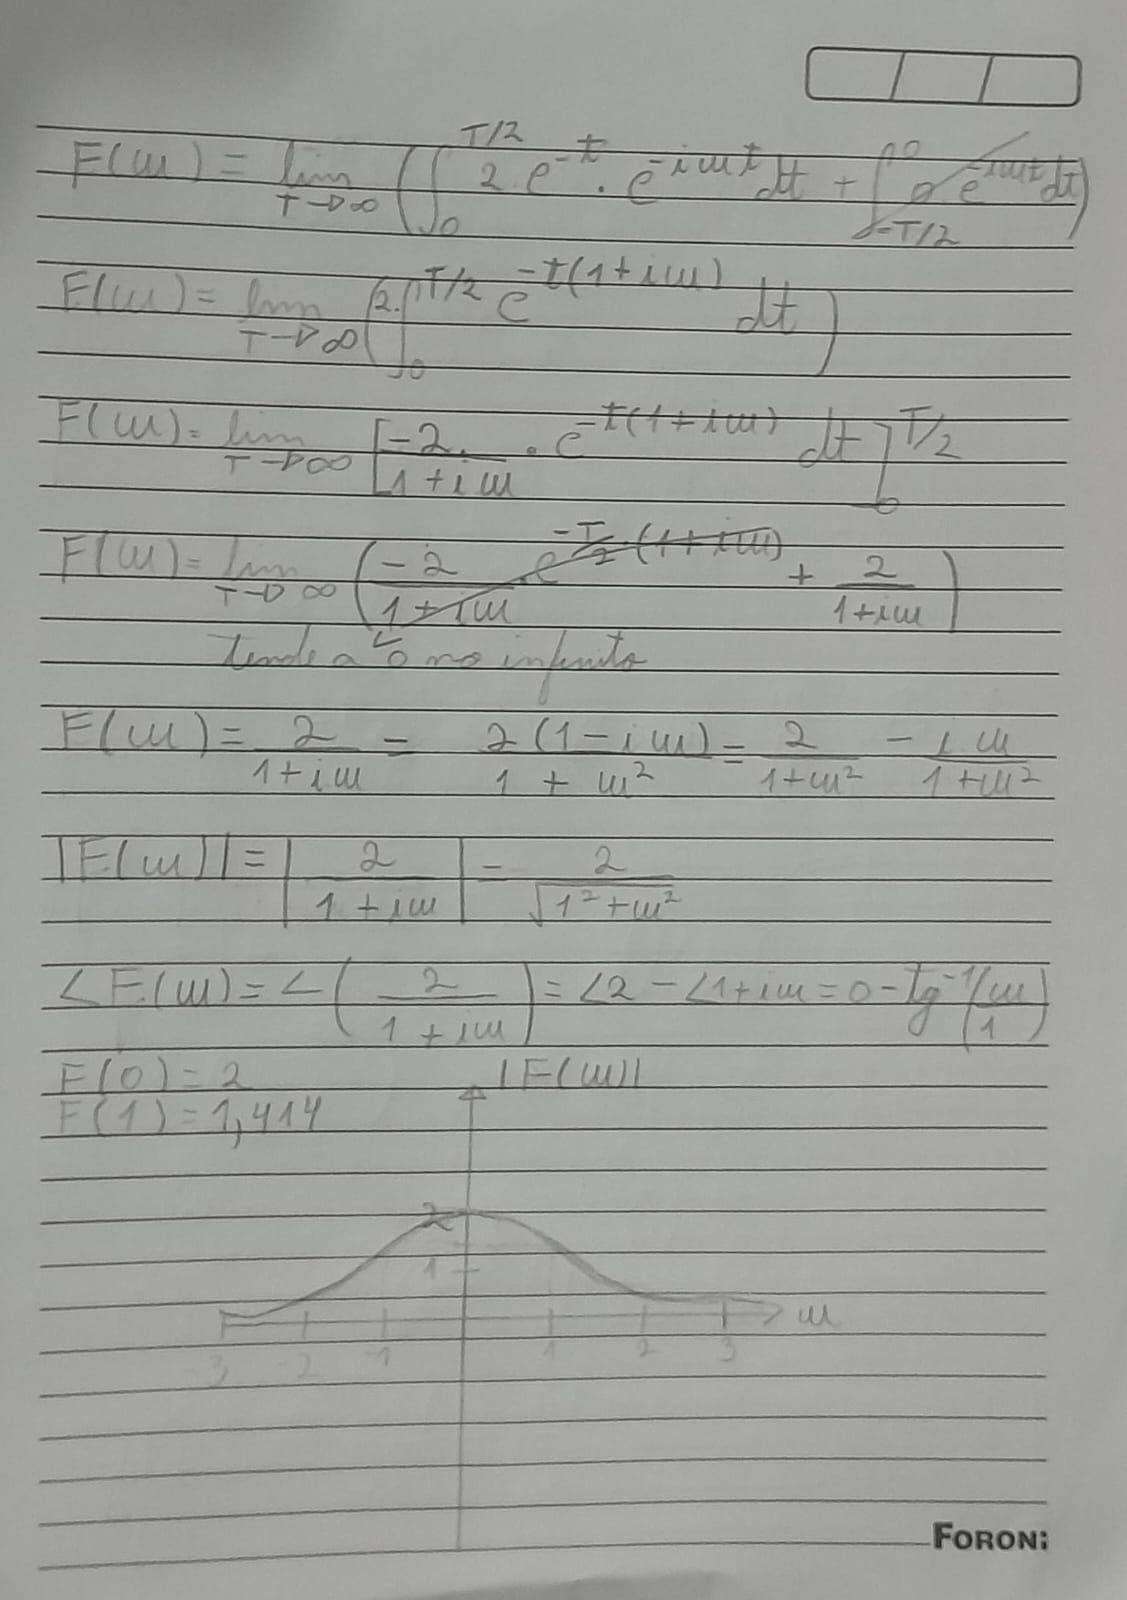 F(ω) = lim T→∞ (∫₀^{T/2} 2.e^{-t} . e^{-iωt} dt + ∫_{-T/2}^{0} 0 e^{-iωt} dt)
F(ω) = lim T→∞ (2.∫₀^{T/2} e^{-t(1+iω)} dt)
F(ω) = lim T→∞ [-2/(1+iω) . e^{-t(1+iω)} dt]₀^{T/2}
F(ω) = lim T→∞ (-2/(1+iω) . e^{-T/2.(1+iω)} + 2/(1+iω))
tende a 0 no infinito
F(ω) = 2/(1+iω) = 2(1-iω)/(1+ω²) = 2/(1+ω²) - iω/(1+ω²)
|F(ω)| = |2/(1+iω)| = 2/√(1²+ω²)
∠F(ω) = ∠(2/(1+iω)) = ∠2 - ∠1+iω = 0 - tg⁻¹(ω/1)
F(0) = 2 |F(ω)|
F(1) = 1,414
2
1
ω
-3 -2 -1 1 2 3
FORONI